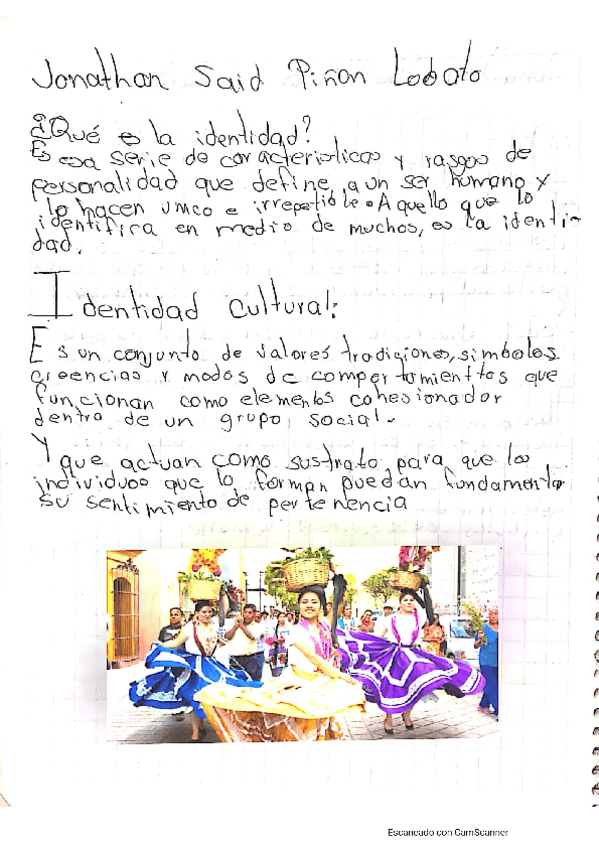 Jonathan Said Piñon Lobato
¿Qué es la identidad?
Es esa serie de caracteristicas y rasgos de
personalidad que define a un ser humano y
lo hacen unico e irrepetible. Aquello que lo
identifica en medio de muchos, es la identi-
dad.
Identidad Cultural:
Es un conjunto de valores tradiciones, simbolos
creencias y modos de comportamienttos que
funcionan como elementos cohesionador
dentro de un grupo social.
Y que actuan como sustrato para que los
individuos que lo forman puedan fundamentar
su sentimiento de pertenencia
Escaneado con CamScanner